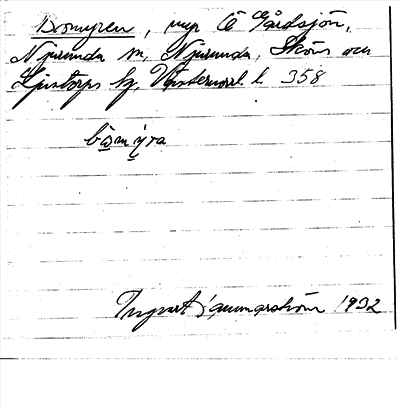 Bosmyren, myr Ö Gårdsjön,
Njurunda sn, Njurunda, Sköns och
Ljustorps tg, Västernorrl. l. 358
bo̱smy̱ra
Ingvart Hammarström 1932